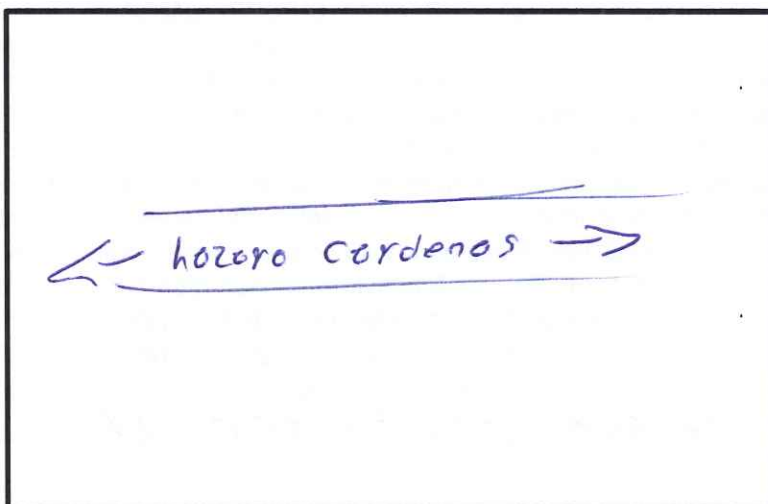 hozoro cordenos